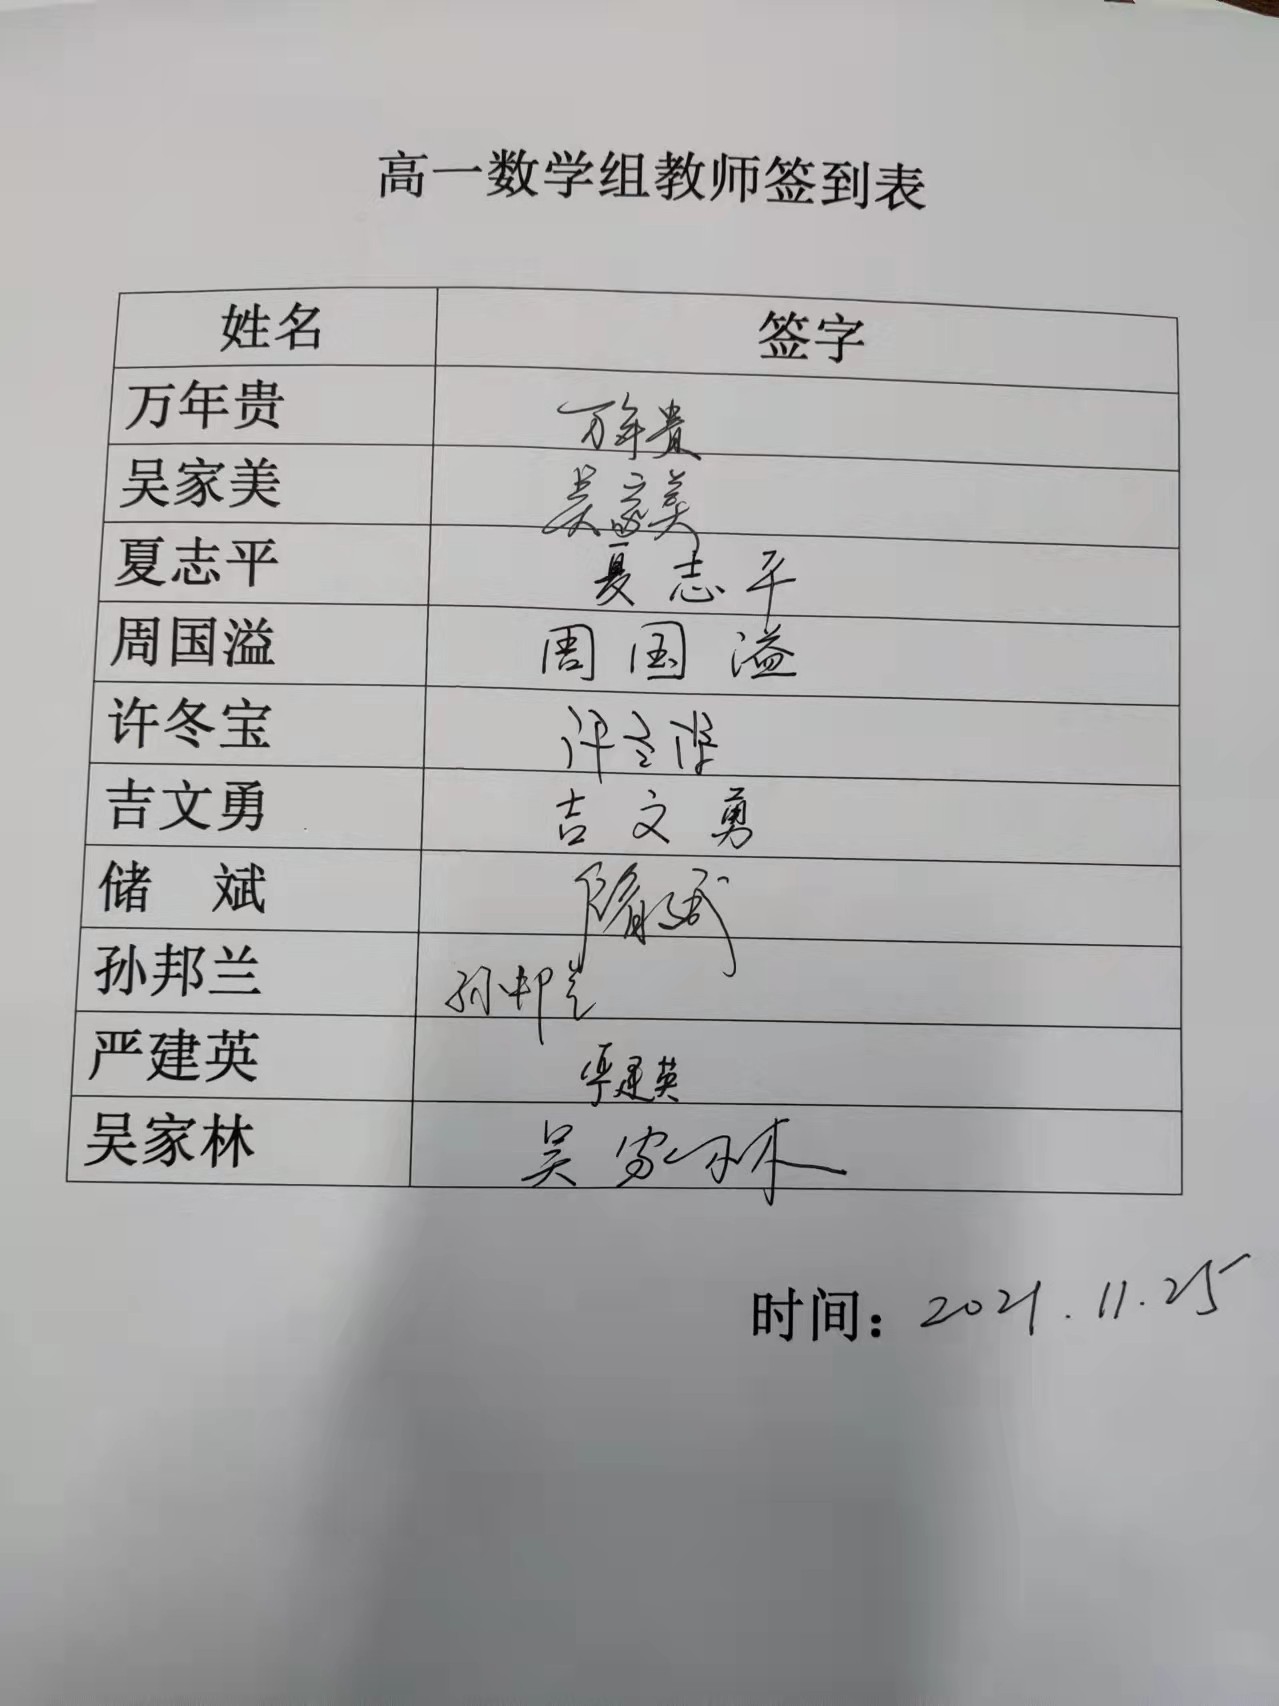 高一数学组教师签到表
姓名 签字
万年贵 万年贵
吴家美 吴家美
夏志平 夏志平
周国溢 周国溢
许冬宝 许
吉文勇 吉文勇
储 斌
孙邦兰 孙邦兰
严建英 严建英
吴家林 吴家林
时间：2021.11.25